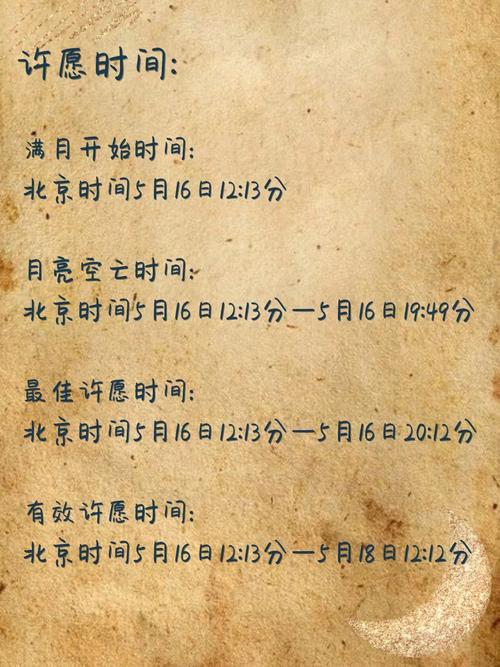 许愿时间:
满月开始时间:
北京时间5月16日12:13分
月亮空亡时间:
北京时间5月16日12:13分—5月16日19:49分
最佳许愿时间:
北京时间5月16日12:13分—5月16日20:12分
有效许愿时间:
北京时间5月16日12:13分—5月18日12:12分